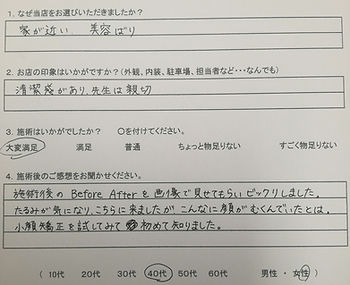 1. なぜ当店をお選びいただきましたか？
家が近い、美容ばり
2. お店の印象はいかがですか？(外観、内装、駐車場、担当者など･･･なんでも)
清潔感があり、先生は親切
3. 施術はいかがでしたか？ ○を付けてください。
大変満足 満足 普通 ちょっと物足りない すごく物足りない
4. 施術後のご感想をお聞かせください。
施術後の Before After を画像で見せてもらいビックリしました。
たるみが気になり、こちらに来ましたが こんなに顔がむくんでいたとは、
小顔矯正を試してみて 初めて知りました。
( 10代 20代 30代 40代 50代 60代 男性 ・ 女性 )